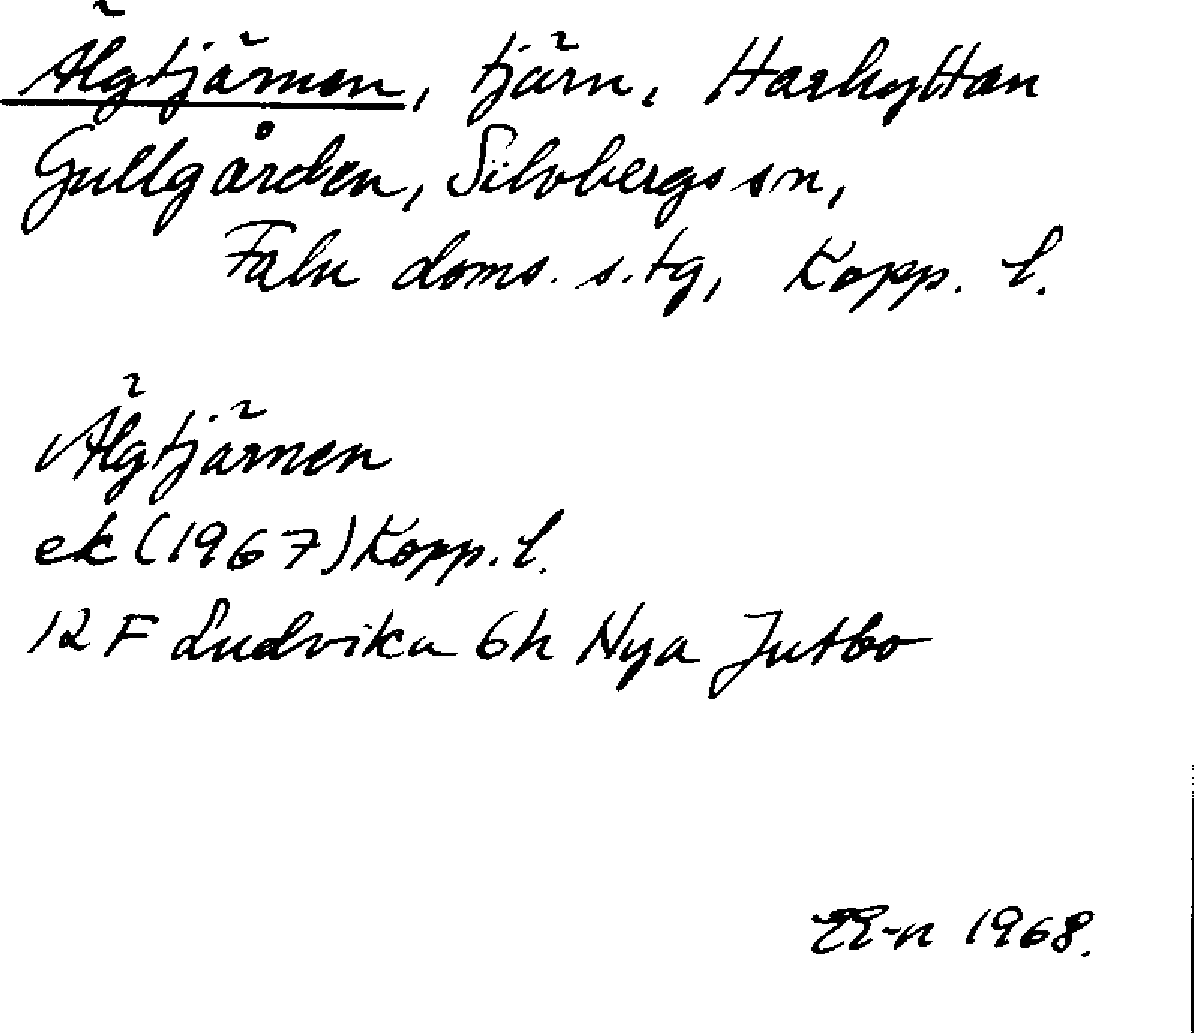 Älgtjärnen, tjärn, Harhyttan
Gullgården, Silvbergs sn,
Falu doms. s. tg, Kopp. l.
Älgtjärnen
ek (1967) Kopp. l.
12 F Ludvika 6h Nya Jutbo
EE-n 1968.